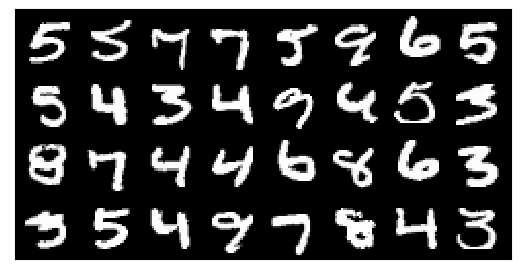 5 5 7 7 5 9 6 5
5 4 3 4 9 4 5 3
8 7 4 4 6 8 6 3
3 5 4 9 7 8 4 3